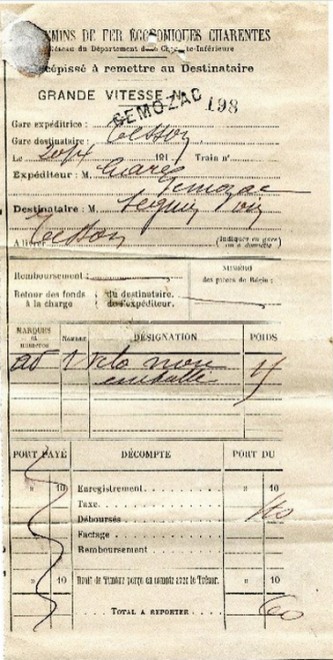 MINS DE FER ÉCONOMIQUES CHARENTES
Réseau du Département de la Charente-Inférieure
cépissé à remettre au Destinataire
GRANDE VITESSE N°
GEMOZAC 198
Gare expéditrice :
Gare destinataire : Tesson
Le sept 191 Train n°
Expéditeur : M.
Gemozac
Destinataire : M. Seguin
A livrer Tesson (Indiquer en gare ou à domicile)
Remboursement :
Retour des fonds à la charge { du destinataire. de l'expéditeur.
NUMÉROS des pièces de Régie :
MARQUES ET NUMÉROS NOMBRE DÉSIGNATION POIDS
1 Vélo non
emballé
PORT PAYÉ DÉCOMPTE PORT DU
» 10 Enregistrement » 10
Taxe
Déboursés
Factage
Remboursement
» 10 Droit de Timbre perçu en compte avec le Trésor. » 10
TOTAL A REPORTER 60